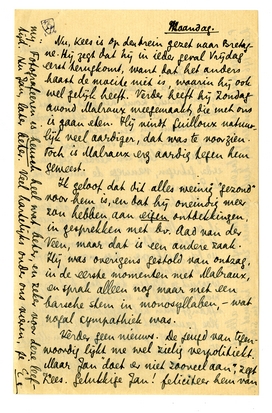 Maandag.
Nu, Kees is op den trein gezet naar Bretag-
ne. Hij zegt dat hij in ieder geval Vrijdag
weer terugkomt, want dat het anders
haast de moeite niet is, waarin hij ook
wel gelijk heeft. Verder heeft hij Zondag-
avond Malraux meegemaakt, die met ons
is gaan eten. Hij vindt Guilloux natuur-
lijk veel aardiger, dat was te voorzien.
Toch is Malraux erg aardig tegen hem
geweest.
Ik geloof dat dit alles weinig "gezond"
voor hem is, en dat hij oneindig meer
zou hebben aan eigen ontdekkingen,
in gesprekken met bv. Aad van der
Veen, maar dat is een andere zaak.
Hij was overigens gestold van ontzag,
in de eerste momenten met Malraux,
en sprak alleen nog maar met een
heesche stem in monosyllaben, – wat
nogal sympathiek was.
Verder geen nieuws. De jeugd van tegen-
woordig lijkt me wel zielig verpolitiekt.
"Maar Jan doet er niet zooveel aan", zegt
Kees. Gelukkige Jan! feliciteer hem van
mij. Fotografeeren is heusch heel wat beter, en zeker voor deze leef-
tijd. Nu Jan, later beter. Veel hartelijks onder ons veren, je E.